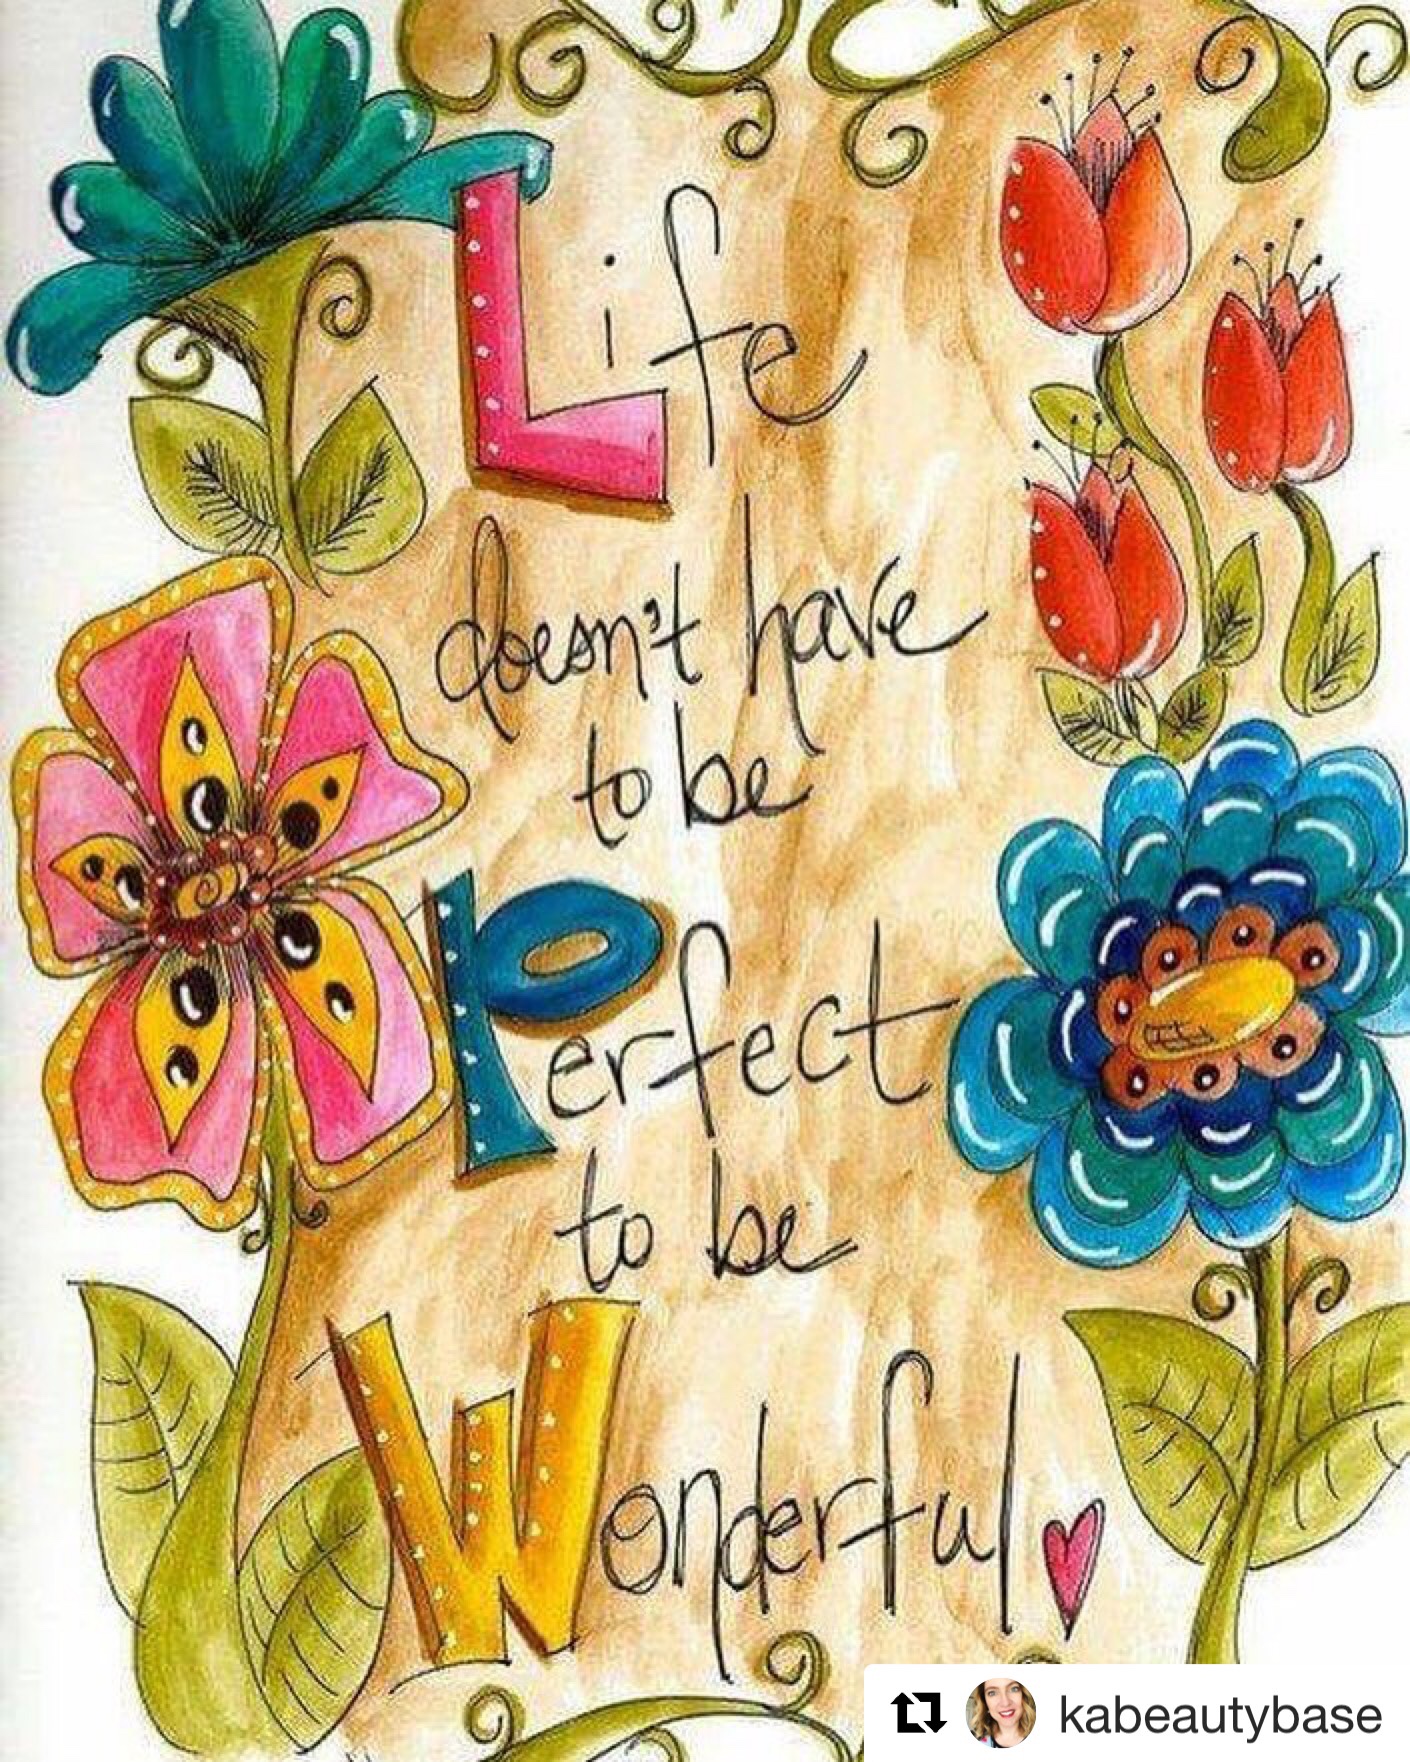 Life
doesn't have
to be
Perfect
to be
Wonderful
kabeautybase